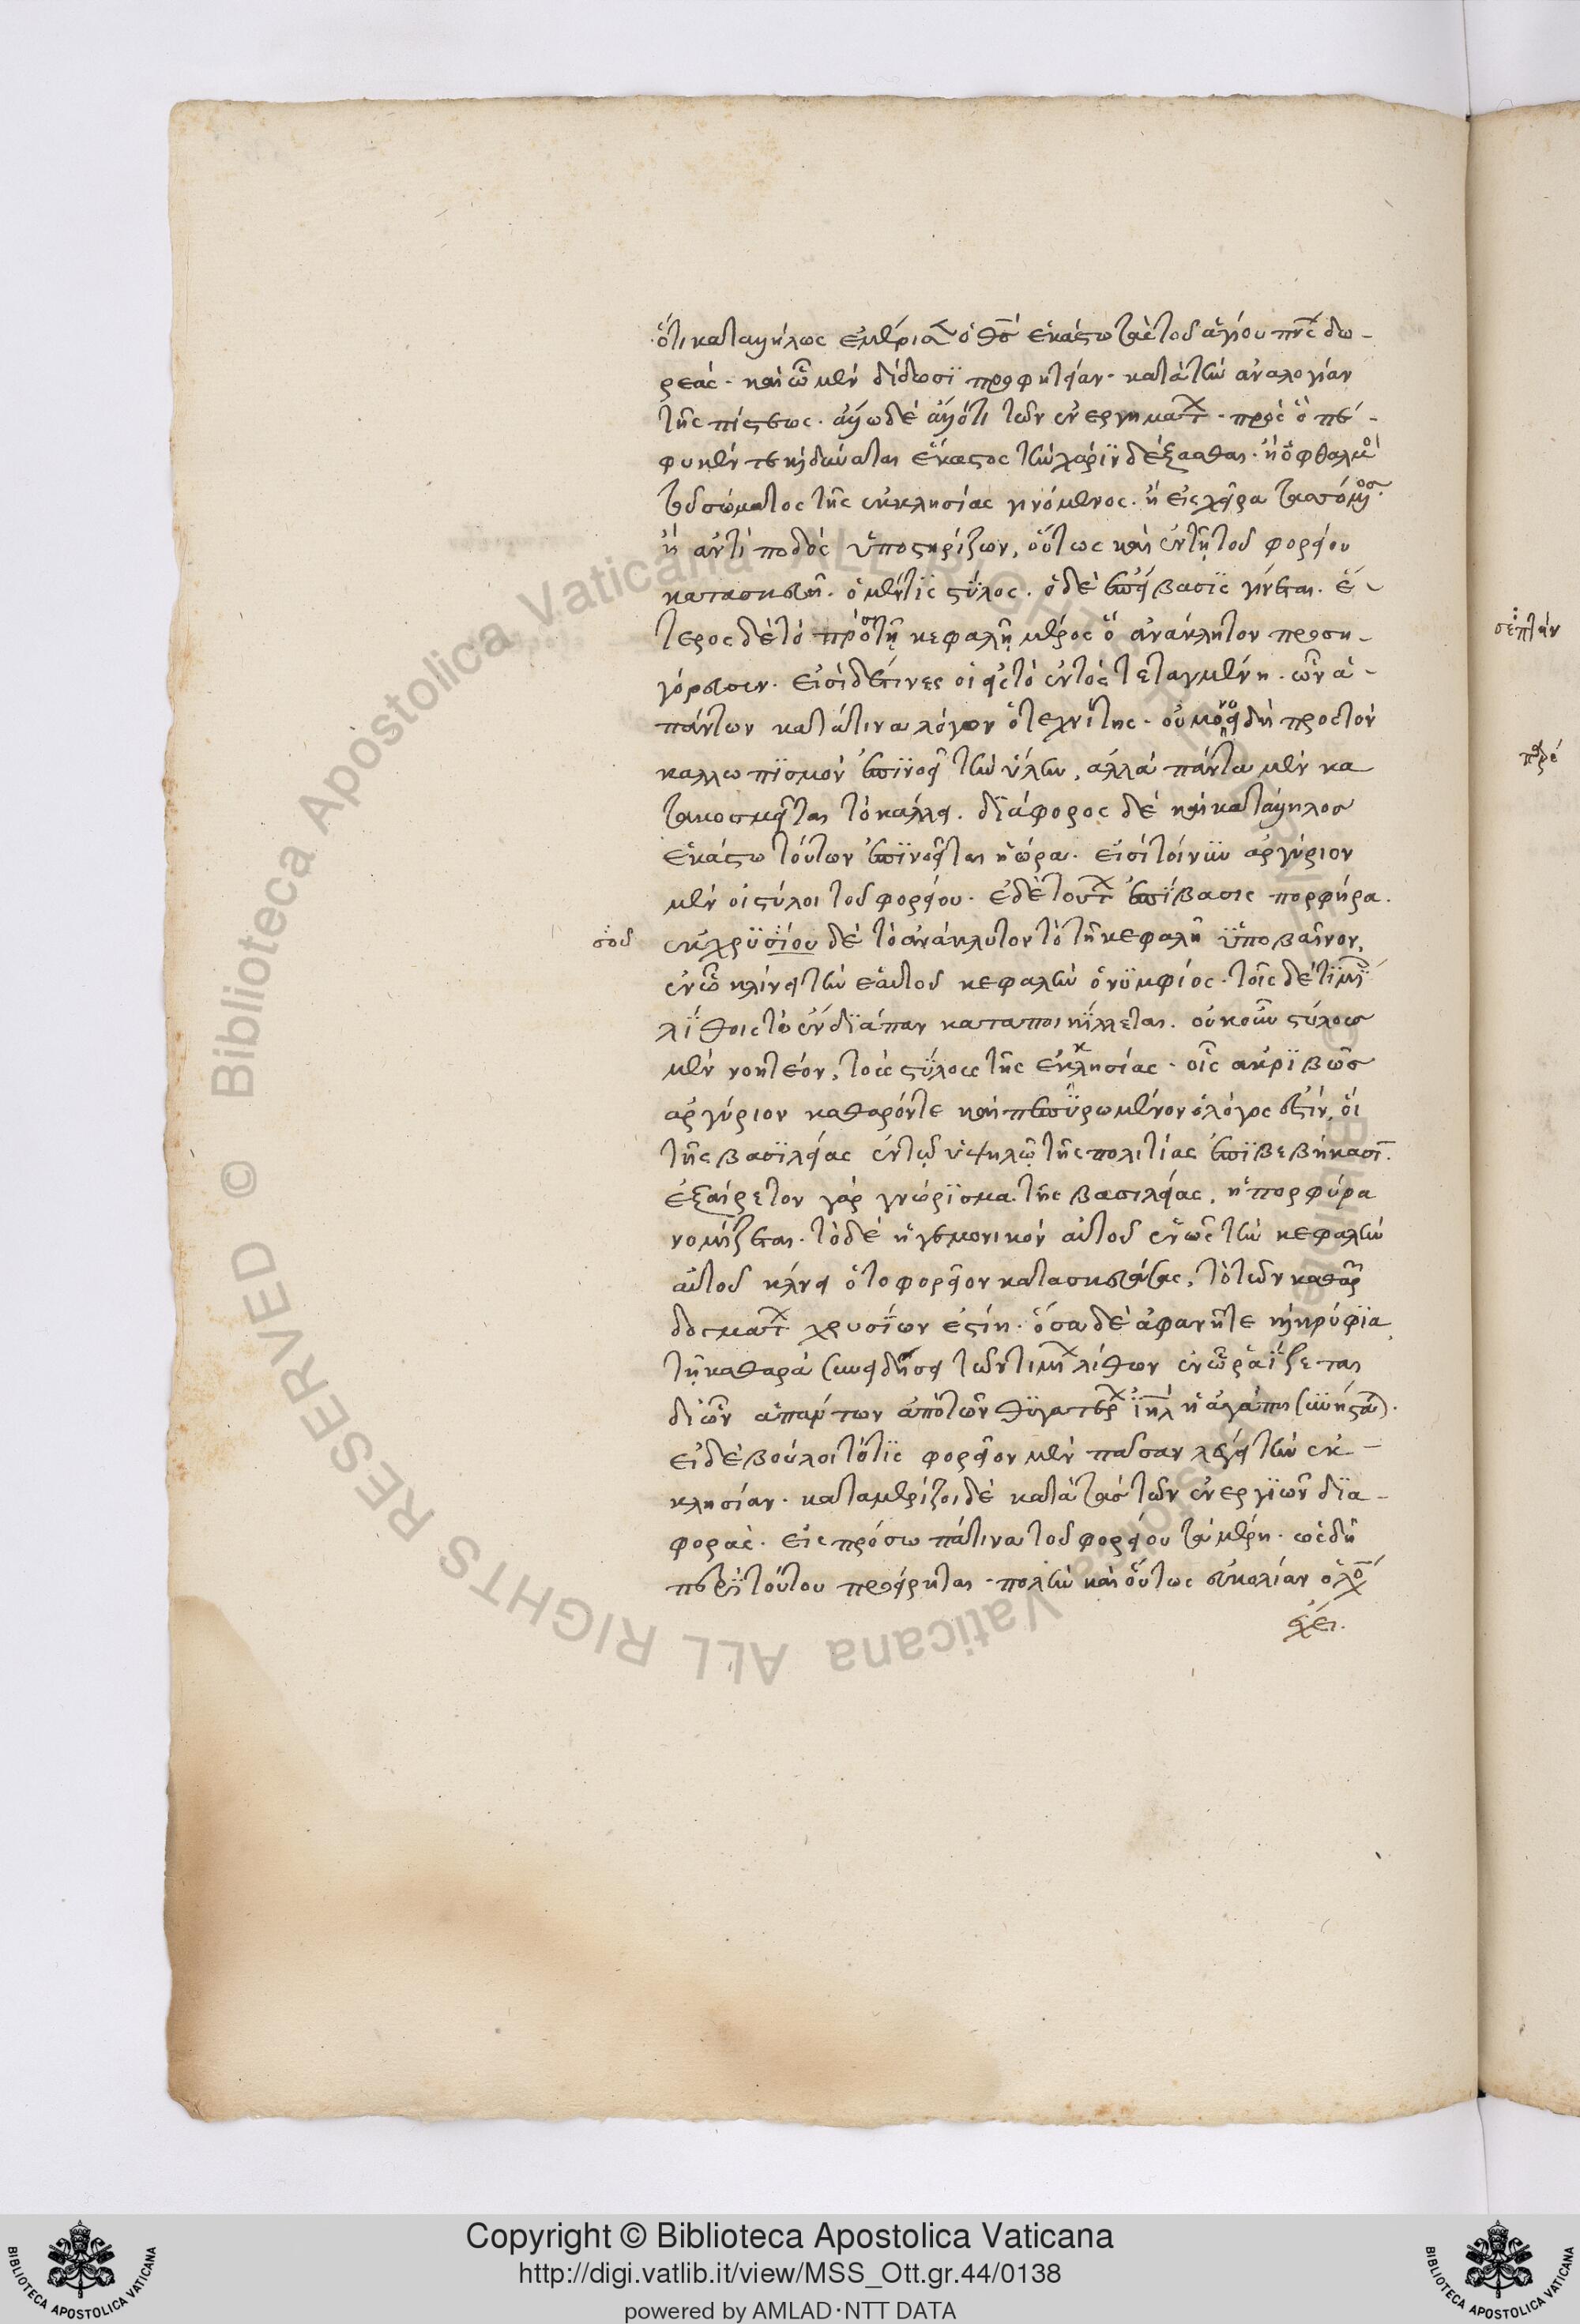 ὅτι καταλλήλως ἐμέρισεν ὁ θς ἑκάστω τὰς τοῦ ἁγίου πνς δω-
ρεάς. καὶ ὧ μὲν δίδωσϊ προφητείαν. κατὰ τὴν ἀναλογίαν
τῆς πίστεως. ἄλλω δὲ ἄλλό τι τῶν ἐνεργημάτ. πρὸς ὃ πέ-
φυκέν τε κὴ δύναται ἕκαστος τὴν χάρϊν δέξασθαι. ἢ ὀφθαλμὸς
τοῦ σώματος τῆς ἐκκλησίας γινόμενος. ἢ εἰς χεῖρα τασσόμενος.
ἢ ἀντὶ ποδὸς ὑποστηρίζων, οὕτως καὶ ἐν τῆ τοῦ φορείου
κατασκευῆ. ὁ μέν τις στύλος. ὁ δὲ ἐπίβασϊς γίνεται. ἕ-
τερος δὲ τὸ πρὸς τῆ κεφαλῆ μέρος ὃ ἀνάκλητον προση-
γόρευσεν. εἰσὶ δέ τινες οἱ εἰς τὸ ἐντὸς τεταγμένη. ὧν ἁ-
πάντων κατά τινα λόγον ὁ τεχνίτης. οὐ μονοειδῆ πρὸς τὸν
καλλωπϊσμὸν ἐπϊνοεῖ τὴν ὕλην, ἀλλὰ πάντα μὲν κα
τακοσμεῖται τὸ κάλλει. διάφορος δὲ καὶ κατάλληλος
ἑκάστω τούτων ἐπϊνοεῖται ἡ ὥρα. εἰσὶ τοίνυν ἀργύριον
μὲν οἱ στύλοι τοῦ φορείου. ἑ δὲ τούτ ἐπϊβασις πορφύρα.
σοῦ ἐκ χρϋσίου δὲ τὸ ἀνάκλυτον τὸ τῆ κεφαλῆ ὑποβαῖνον,
ἐν ὧ κλίνει τὴν ἑαυτοῦ κεφαλὴν ὁ νϋμφίος. τοῖς δὲ τϊμί
λϊθοις τὸ ἔνδϊάπαν καταποικίλλεται. οὐκοῦν στύλους
μὲν νοητέον, τοὺς στύλους τῆς ἐκκλησίας. οἷς ἀκρϊβῶς
ἀργύριον καθαρόν τε καὶ πεπϋρωμένον ὁ λόγος ἐστίν, οἱ
τῆς βασϊλείας ἐν τῶ ὑψηλῶ τῆς πολιτίας ἐπϊβεβήκασι.
ἐξαίρετον γὰρ γνώρϊσμα τῆς βασιλείας, ἡ πορφύρα
νομίζεται. τὸ δὲ ἡγεμονικὸν αὐτοῦ ἐν ὧ τὴν κεφαλὴν
αὐτοῦ κλίνει ὁ το φορεῖον κατασκευάσας, τὸ τῶν καθαρ
δογματ χρυσϊων ἐστίν. ὅσα δὲ ἀφανῆ τε κὴ κρύφϊα,
τῆ καθαρᾶ συνειδήσει τῶν τιμί λίθων ἐνωραΐζεται
δι ὧν ἁπάντων ἀπὸ τῶν θϋγατέρ ϊηλ ἡ ἀγάπη συνήσταται.
εἰ δὲ βούλοιτό τϊς φορεῖον μὲν πᾶσαν λέγειν τὴν ἐκ-
κλησίαν. καταμερίζοι δὲ κατὰ τὰς τῶν ἐνεργϊῶν δϊα-
φοράς. εἰς πρόσωπά τινα τοῦ φορείου τὰ μέρη. ὡς δὴ
περϊ τούτου προείρηται. πολὺν καὶ οὕτως εὐκολίαν ὁ λό
ἔχει.
σέπταν
Copyright © Biblioteca Apostolica Vaticana
http://digi.vatlib.it/view/MSS_Ott.gr.44/0138
powered by AMLAD·NTT DATA
BIBLIOTECA APOSTOLICA VATICANA
BIBLIOTECA APOSTOLICA VATICANA
© Biblioteca Apostolica Vaticana ALL RIGHTS RESERVED